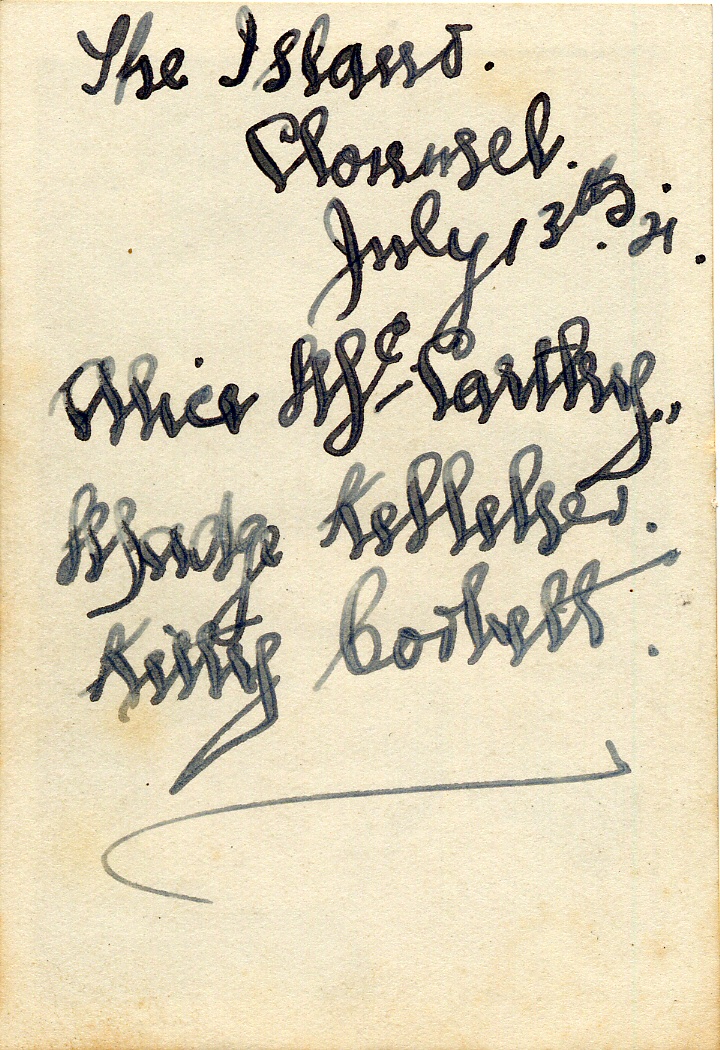 The Island.
Clonmel.
July 13th. 21.
Alice Mc. Carthy.,
Madge Kelleher.
Kitty Corbett.